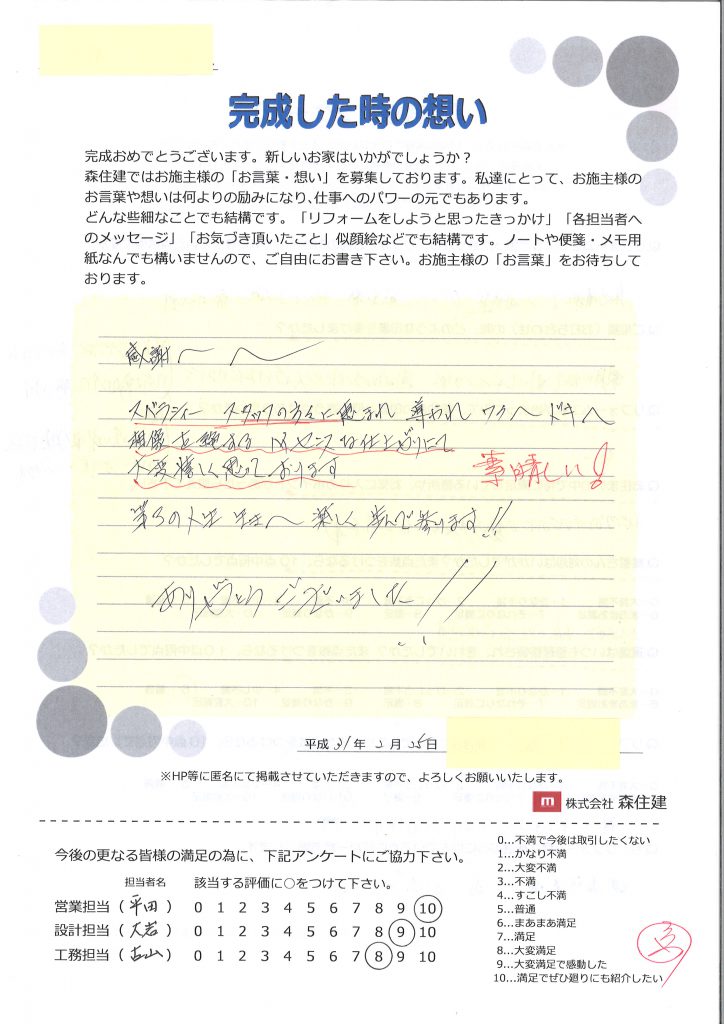 完成した時の想い
完成おめでとうございます。新しいお家はいかがでしょうか？
森住建ではお施主様の「お言葉・想い」を募集しております。私達にとって、お施主様の
お言葉や想いは何よりの励みになり､仕事へのパワーの元でもあります。
どんな些細なことでも結構です。「リフォームをしようと思ったきっかけ」「各担当者へ
のメッセージ」「お気づき頂いたこと」似顔絵などでも結構です。ノートや便箋・メモ用
紙なんでも構いませんので、ご自由にお書き下さい。お施主様の「お言葉」をお待ちして
おります。
感謝〜 〜
スペシャシー スタッフの方々に恵まれ 導かれ ワク〜 ドキ〜
想像を絶する Nセンスな仕上がりにて
大変嬉しく思っております
素晴しい!
第3の人生 生き〜 楽しく 歩んで参ります!!
ありがとうございました!!
平成 31 年 2 月 25 日
※HP等に匿名にて掲載させていただきますので、よろしくお願いいたします。
m 株式会社 森住建
今後の更なる皆様の満足の為に、下記アンケートにご協力下さい。
担当者名 該当する評価に○をつけて下さい。
営業担当（ 平田 ） 0 1 2 3 4 5 6 7 8 9 10
設計担当（ 大岩 ） 0 1 2 3 4 5 6 7 8 9 10
工務担当（ 古山 ） 0 1 2 3 4 5 6 7 8 9 10
0…不満で今後は取引したくない
1…かなり不満
2…大変不満
3…不満
4…すこし不満
5…普通
6…まあまあ満足
7…満足
8…大変満足
9…大変満足で感動した
10…満足でぜひ廻りにも紹介したい